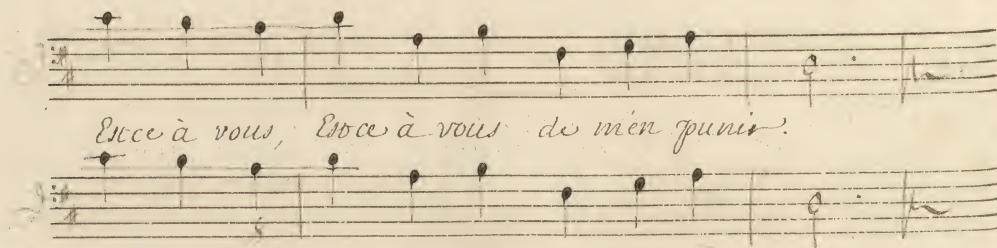 Est ce à vous, Est ce à vous de m'en punir.